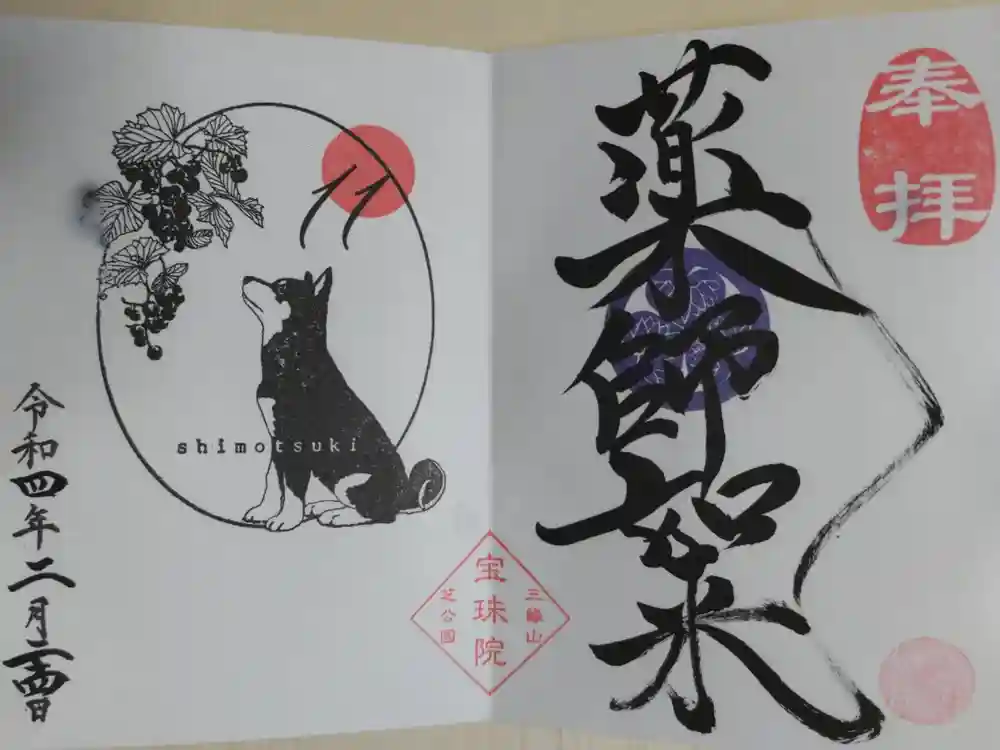 奉拝
薬師如来
三縁山
宝珠院
芝公園
11
shimotsuki
令和四年二月二十四日